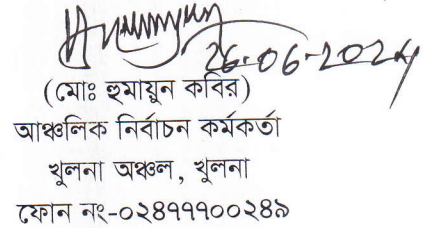 26-06-2024
(মোঃ হুমায়ুন কবির)
আঞ্চলিক নির্বাচন কর্মকর্তা
খুলনা অঞ্চল, খুলনা
ফোন নং-০২৪৭৭৭০০২৪৯